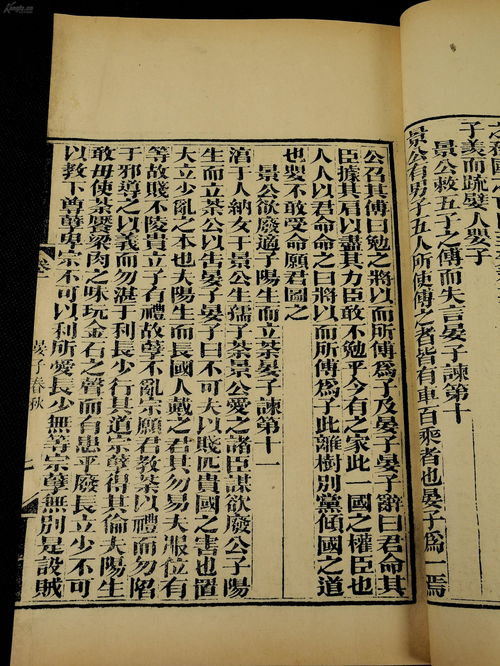 子義而疏嬖人嬰子
景公敕五子之傅而失言晏子諫第十
景公有男子五人所使傅之者皆有車百乘者也晏子爲一焉
公召其傅曰勉之將以而所傅爲子及晏子晏子辭曰君命其
臣據其肩以盡其力臣敢不勉乎今有之家此一國之權臣也
人人以君命命之曰將以而所傅爲子此離樹別黨傾國之道
也嬰不敢受命願君圖之
景公欲廢適子陽生而立荼晏子諫第十一
淯于人納女于景公生孺子荼景公愛之諸臣謀欲廢公子陽
生而立荼公以告晏子晏子曰不可夫以賤匹貴國之害也置
大立少亂之本也夫陽生而長國人戴之君其勿易夫服位有
等故賤不陵貴立子有禮故孽不亂宗願君教荼以禮而勿陷
于邪導之以義而勿湛于利長少行其道宗孽得其倫夫陽生
敢毋使荼饜粱肉之味玩金石之聲而有患乎廢長立少不可
以教下尊孽卑宗不可以利所愛長少無等宗孽無別是設賊
晏子春秋